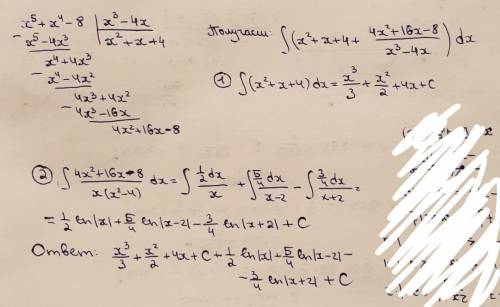 x⁵ + x⁴ - 8 | x³ - 4x
- x⁵ - 4x³ | x² + x + 4
x⁴ + 4x³
- x⁴ - 4x²
4x³ + 4x²
- 4x³ - 16x
4x² + 16x - 8
Получаем: ∫(x² + x + 4 + (4x² + 16x - 8)/(x³ - 4x)) dx
① ∫(x² + x + 4) dx = x³/3 + x²/2 + 4x + C
② ∫ (4x² + 16x - 8)/(x(x² - 4)) dx = ∫ (½ dx)/x + ∫ (5/4 dx)/(x - 2) - ∫ (3/4 dx)/(x + 2) =
= ½ ln|x| + 5/4 ln|x - 2| - 3/4 ln|x + 2| + C
Ответ: x³/3 + x²/2 + 4x + C + ½ ln|x| + 5/4 ln|x - 2| -
- 3/4 ln|x + 2| + C